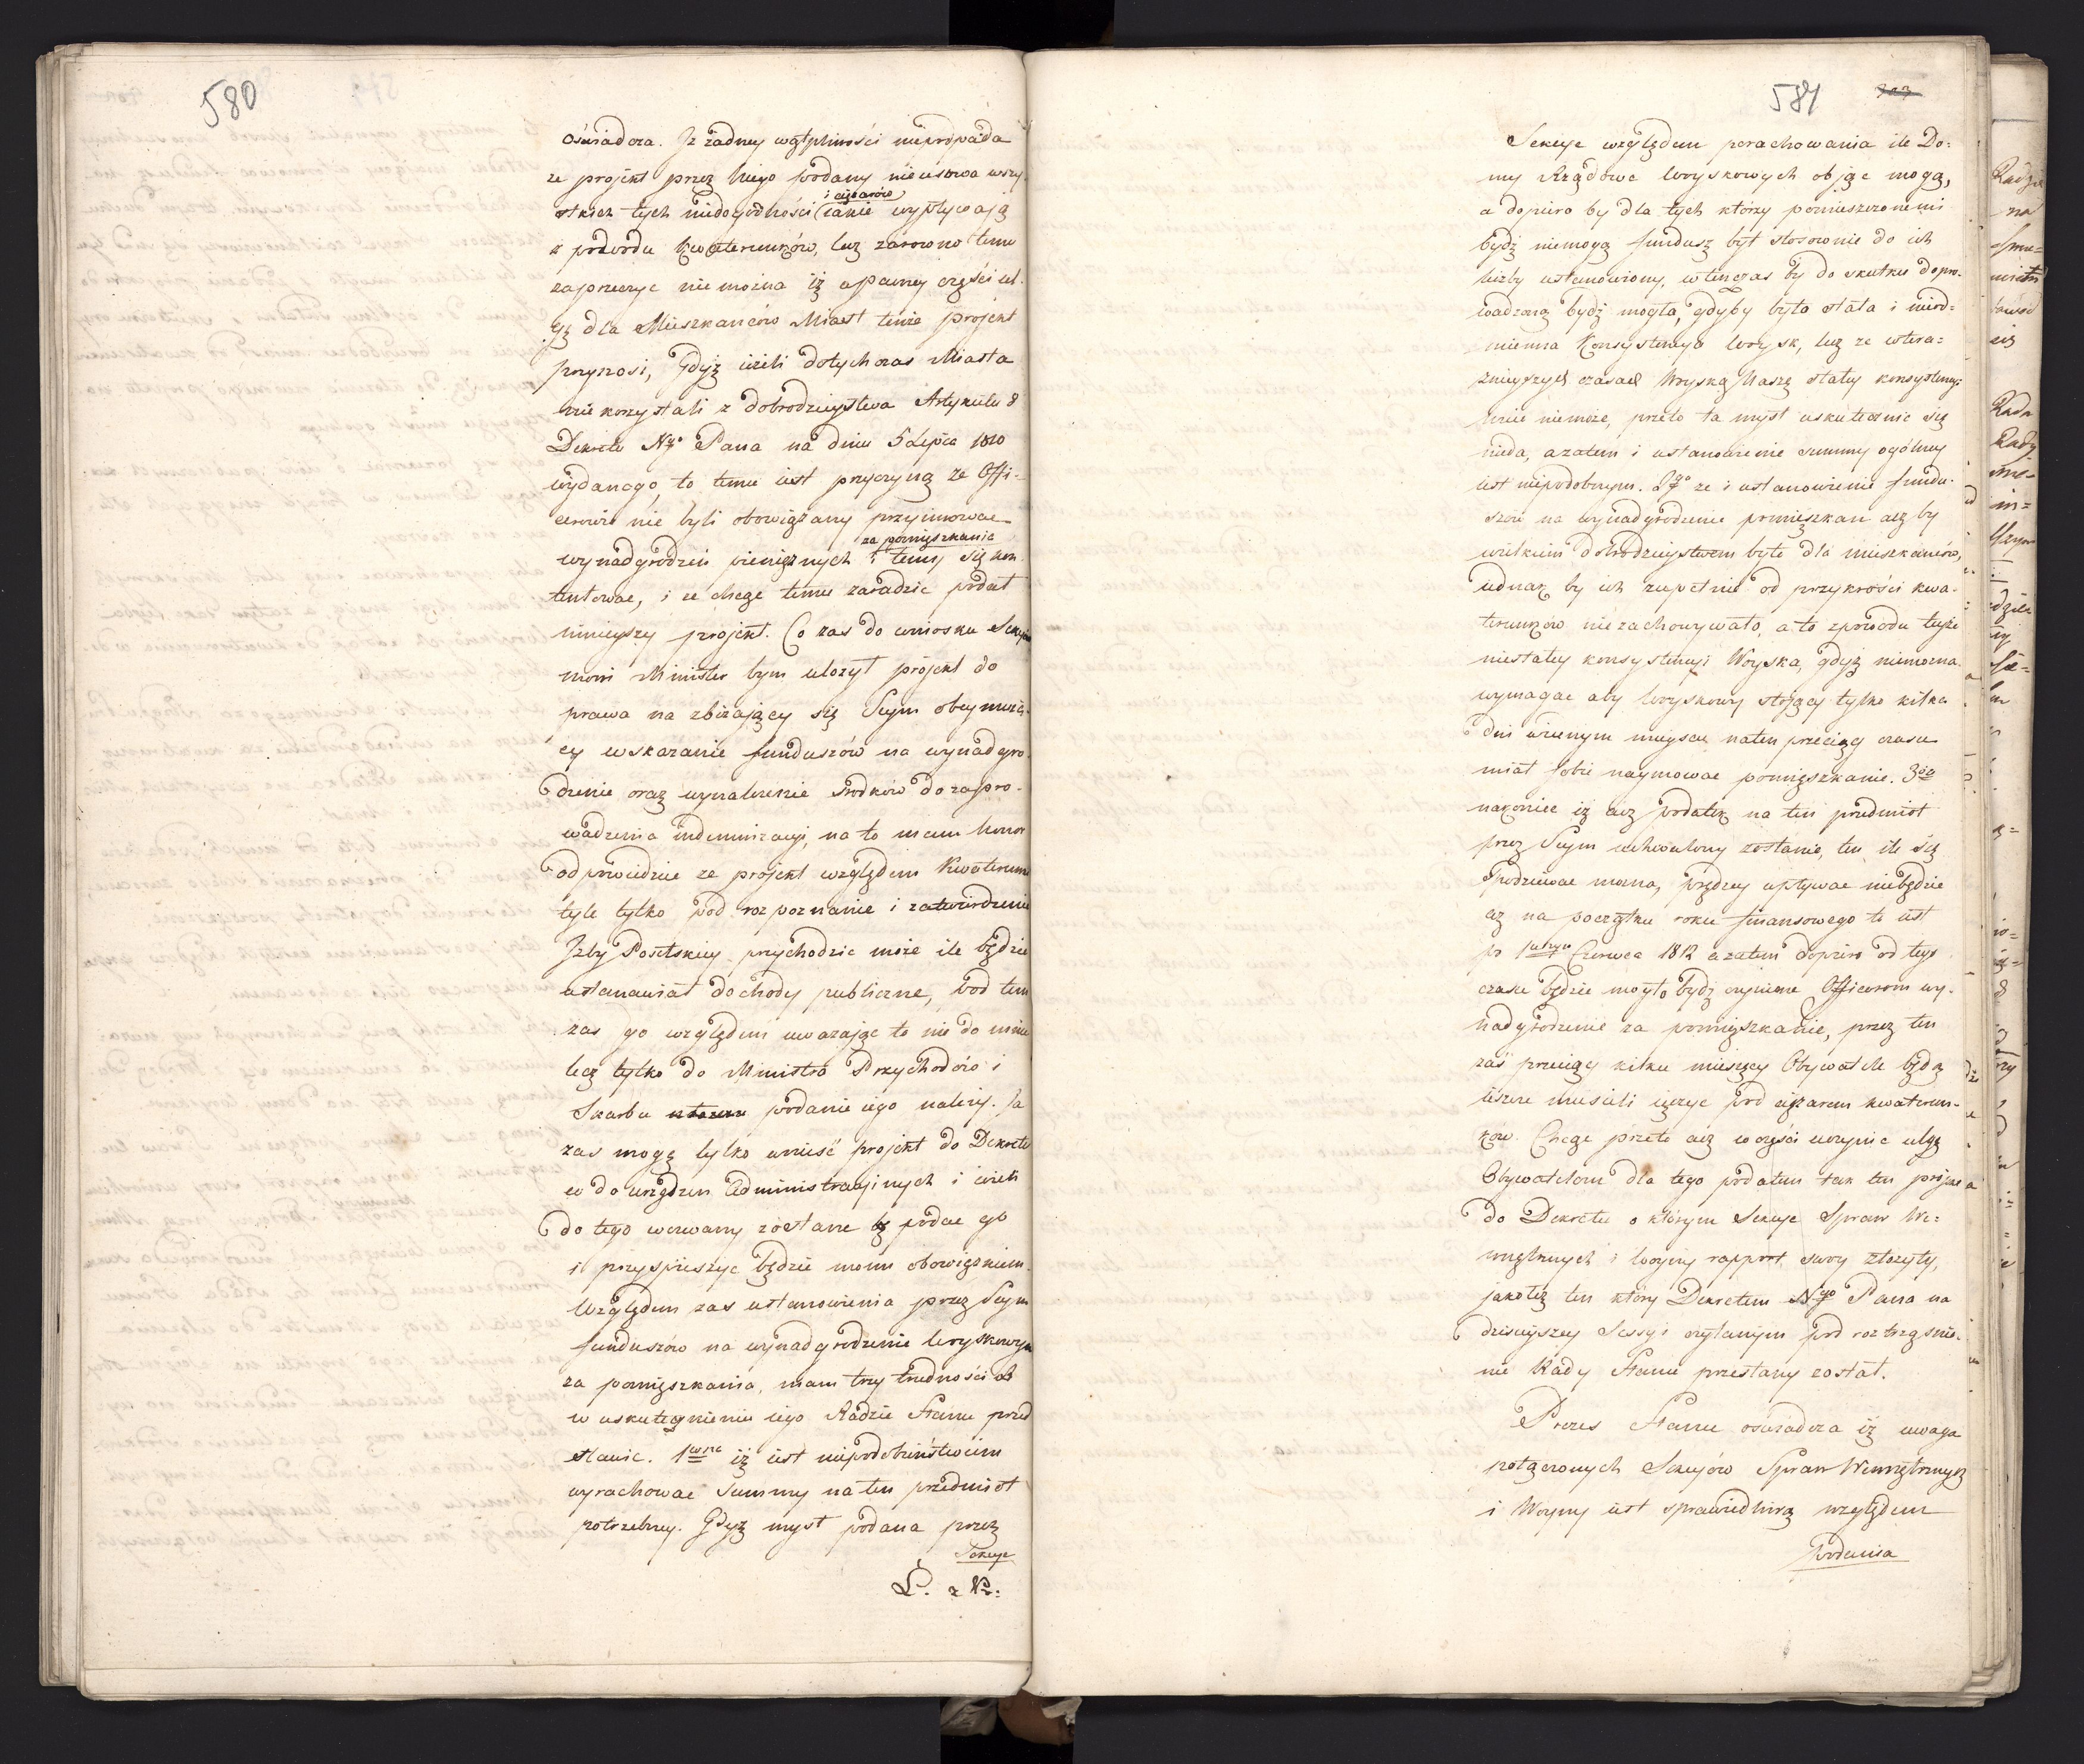 580
oświadcza. Iż żadney wątpliwości niepodpada
że projekt przez Niego podany nieusuwa wszy-
stkich tych niedogodności i ciężarów iakie wypływaią
z powodu kwaterunków, lecz zarowno temu
zaprzeczyc nie można iż w pewney części ul-
gę dla Mieszkańców Miast tenże projekt
przynosi, gdyż ieżeli dotychczas Miasta
nie korzystali z dobrodzieystwa Artykułu 8
Dekretu Ngo Pana na dniu 5 Lipca 1810
wydanego, to temu iest przyczyną że Offi-
cerowie nie byli obowiązany przyimowac
wynadgrodzeń pieniężnych za pomięszkanie i temy się kon-
tentowac, i że chcąc temu zaradzic podał
ninieyszy projekt. Co zas do wniosku Sekcyi
mowi Minister bym ułożył projekt do
prawa na zbliżaiący się Seym obeymuią-
cy wskazanie funduszów na wynadgro-
dzenie oraz wynalezienie srodków do zapro-
wadzenia indemnizacyi, na to mam honor
odpowiedziec że projekt względem Kwaterunku
tyle tylko pod rozpoznanie i zatwierdzenie
Izby Poselskiey przychodzic może ile będzie
ustanawiał dochody publiczne, pod tem
zas go względem uwazając to nie do mnie
lecz tylko do Ministra Przychodów i
Skarbu podanie iego należy. Ja
zas mogę tylko wnieść projekt do Dekretu
w do urządzeń Administracyinych i ieżeli
do tego wezwany zostanę podac go
i przyspieszyc będzie moim obowiązkiem.
Względem zas ustanowienia przez Seym
funduszów na wynadgrodzenie Woyskowym
za pomięszkania, mam trzy trudności
w uskutecznieniu iego Radzie Stanu przed
stawic. 1wsze iż iest niepodobieństwem
wyrachowac Summy na ten przedmiot
potrzebney. Gdyż mysl podana przez
Sekcye
581
Sekcye względem porachowania ile Do=
my Rządowe Woyskowych obiąc mogą,
a dopiero by dla tych którzy pomieszczonemi
bydź niemogą fundusz był stosownie do ich
liczby ustanowiony, wtenczas by do skutku dopro-
wadzoną bydź mogła, gdyby była stała i nieod=
mienna Konsystencya Woysk, lecz że w tera=
znieyszych czasach Woyska Nasze stałey konsystencyi
miec niemoże, przeto ta mysl uskutecznic się
nieda, a zatem i ustanowienie summy ogólney
iest niepodobnym. 2go że i ustanowienie fundu-
szów na wynadgrodzenie pomięszkań acz by
wielkiem dobrodzieystwem było dla mieszkańców,
iednak by ich zupełnie od przykrości kwa-
terunków niezachowywało, a to z powodu teyże
niestałey konsystencyi Woyska, gdyż niemożna
wymagac aby Woyskowy stojący tylko kilka
dni w iednym mieyscu na ten przeciąg czasu
miał sobie naymowac pomięszkanie. 3cie
nakoniec iż acz podatek na ten przedmiot
przez Seym uchwalony zostanie, ten ile się
spodziewac można, prędzey upływac niebędzie
aż na początku roku finansowego to iest
po 1wszym Czerwca 1812 a zatem dopiero od tego
czasu będzie mogło bydź czynione Officerom wy-
nadgrodzenie za pomięszkanie, przez ten
zaś przeciąg kilku miesięcy Obywatele będą
ieszcze musieli ięczyc pod ciężarem kwaterun-
ków. Chcąc przeto acz w części uczynic ulgę
Obywatelom dla tego podałem tak ten projekt
do Dekretu o którym Sekcye Spraw We=
wnętrznych i Woyny rapport swoy złożyły,
jakoteż ten który Dekretem Ngo Pana na
dzisieyszey Sessyi czytanym pod roztrząsnie-
nie Rady Stanu przesłany został.
Prezes Stanu oświadcza iż uwaga
połączonych Sekcyów Spraw Wewnętrznych
i Woyny iest sprawiedliwą względem
podania